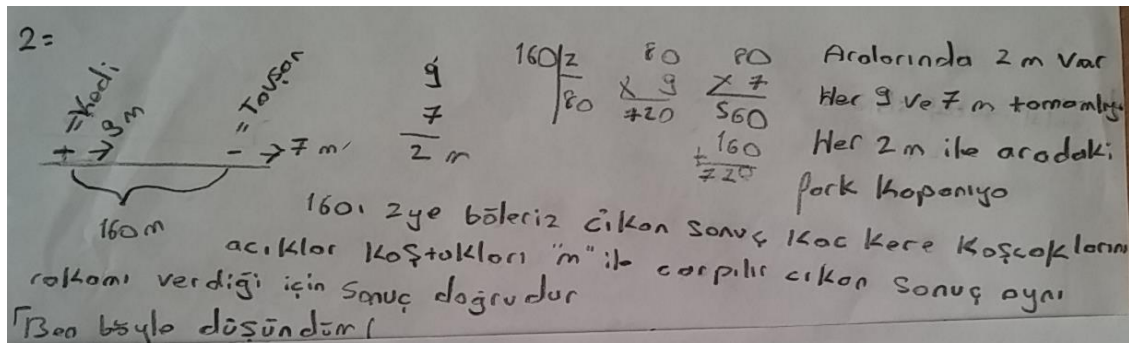 2=
+ =Kedi → 9 m
- =Tavşan → 7 m
160 m
9
7
2 m
160 2
80
80
x 9
720
80
x 7
560
+ 160
720
Aralarında 2 m var
Her 9 ve 7 m
Her 2 m ile aradaki
park kapanıyo
160ı 2ye böleriz cikan sonuç kac kere koşcaklarını
acıklar koştukları "m" ile carpılır cıkan sonuç aynı
rakamı verdiği için sonuç doğrudur
Ben böyle düşündüm